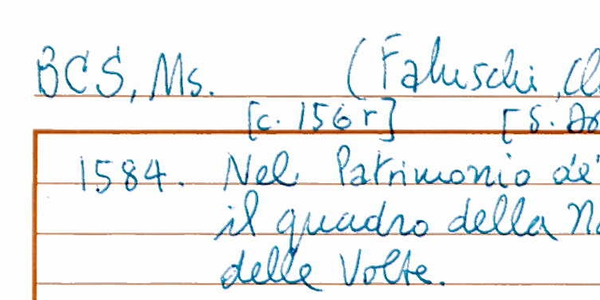 BCS, Ms. (Faluschi,
[c. 156 r] [S.
1584. Nel Patrimonio de'
il quadro della
delle Volte.